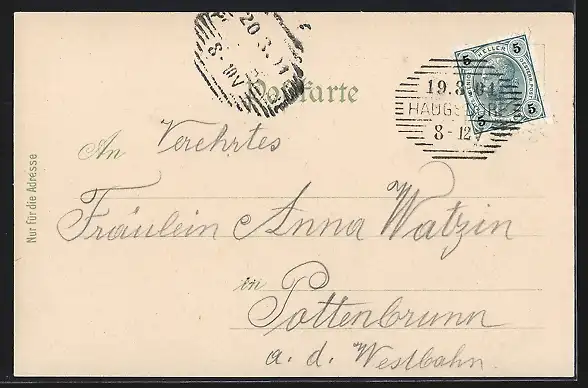 20.3.01
8-
Postkarte
5 HELLER 5
19.3 01
HAUGSDORF
8-12V
5 5
Nur für die Adresse
An Verehrtes
Fräulein Anna Watzin
in
Pottenbrunn
a. d. Westbahn.